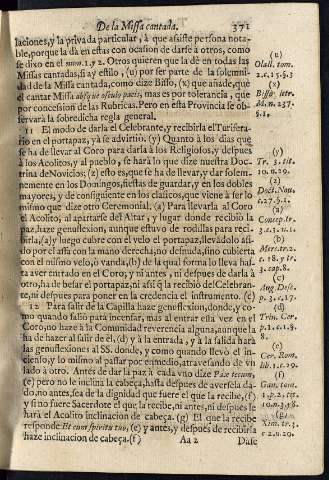 De la Missa cantada. 371
laciones, y la privada particular, à que asiste persona nota-
ble, porque la dà en estas con ocasion de darse à otros, como
se dixo en el num. 1. y 2. Otros quieren que la dè en todas las
Missas cantadas, si ay estilo, (u) por ser parte de la solemni-
dad de la Missa cantada, como dize Bisso, (x) que añade, que
el cantar Missa absque osculo pacis, mas es por tolerancia, que
por concesion de las Rubricas. Pero en esta Provincia se ob-
servarà la sobredicha regla general.
11 El modo de darla el Celebrante, y recibirla el Turifera-
rio en el portapaz, yà se advirtiò. (y) Quanto à los dias que
se ha de llevar al Coro para darla à los Religiosos, y despues
à los Acolitos, y al pueblo, se harà lo que dize nuestra Doc-
trina de Novicios; (z) esto es, que se ha de llevar, y dar solem-
nemente en los Domingos, fiestas de guardar, y en los dobles
mayores, y de consiguiente en los clasicos, que viene à ser lo
mismo que dize otro Ceremonial. (a) Para llevarla al Coro
el Acolito, al apartarse del Altar, y lugar donde recibiò la
paz, haze genuflexion, aunque estuvo de rodillas para reci-
birla, (a) y luego cubre con el velo el portapaz, llevadolo asi-
do por el assa con la mano derecha, no desnuda, sino cubierta
con el mismo velo, ò vanda, (b) de la qual forma lo lleva has-
ta aver entrado en el Coro, y ni antes, ni despues de darla à
otro, ha de besar el portapaz, ni assi q̃ la recibiò del Celebran-
te, ni despues para poner en la credencia el instrumento. (c)
12 Para salir de la Capilla haze genuflexion, donde, y co-
mo quando saliò para incensar, mas al entrar esta vez en el
Coro, no haze à la Comunidad reverencia alguna, aunque la
ha de hazer al salir de èl, (d) y à la entrada, y à la salida harà
las genuflexiones al SS. donde, y como quando llevò el in-
cienso, y lo mismo al passar por enmedio, atravesando de un
lado à otro. Antes de dar la paz à cada uno dize Pax tecum,
(e) pero no le inclina la cabeça, hasta despues de aversela da-
do, no antes, sea de la dignidad que fuere el que la recibe, (f)
y si no fuere Sacerdote el que la recibe, ni antes, ni despues le
harà el Acolito inclinacion de cabeça. (g) El que la recibe
responde Et cum spiritu tuo, (e) y antes, y despues de recibirla
haze inclinacion de cabeça. (f)
Aa 2 Dase
(u)
Olall. tom.
2. c. 25. §. 3
(x)
Bisso, liter.
M. n. 237.
§. 1.
(y)
Tr. 3. tit.
10. n. 29.
(z)
Doct. Nou.
c. 27. §. 1.
(a)
Concep. tr.
3. c. 3. n. 1.
(b)
Merc. tr. 2.
c. 18. y tr.
3. cap. 8.
(c)
Aug. Desc.
p. 3. c. 17.
(d)
Trin. Cer.
p. 1. c. 1. §.
8.
(e)
Cer. Rom.
lib. 1. c. 29.
(f)
Gav. tom.
1. p. 2. tit.
10. n. 3.
(g)
c. 2. n. 29.